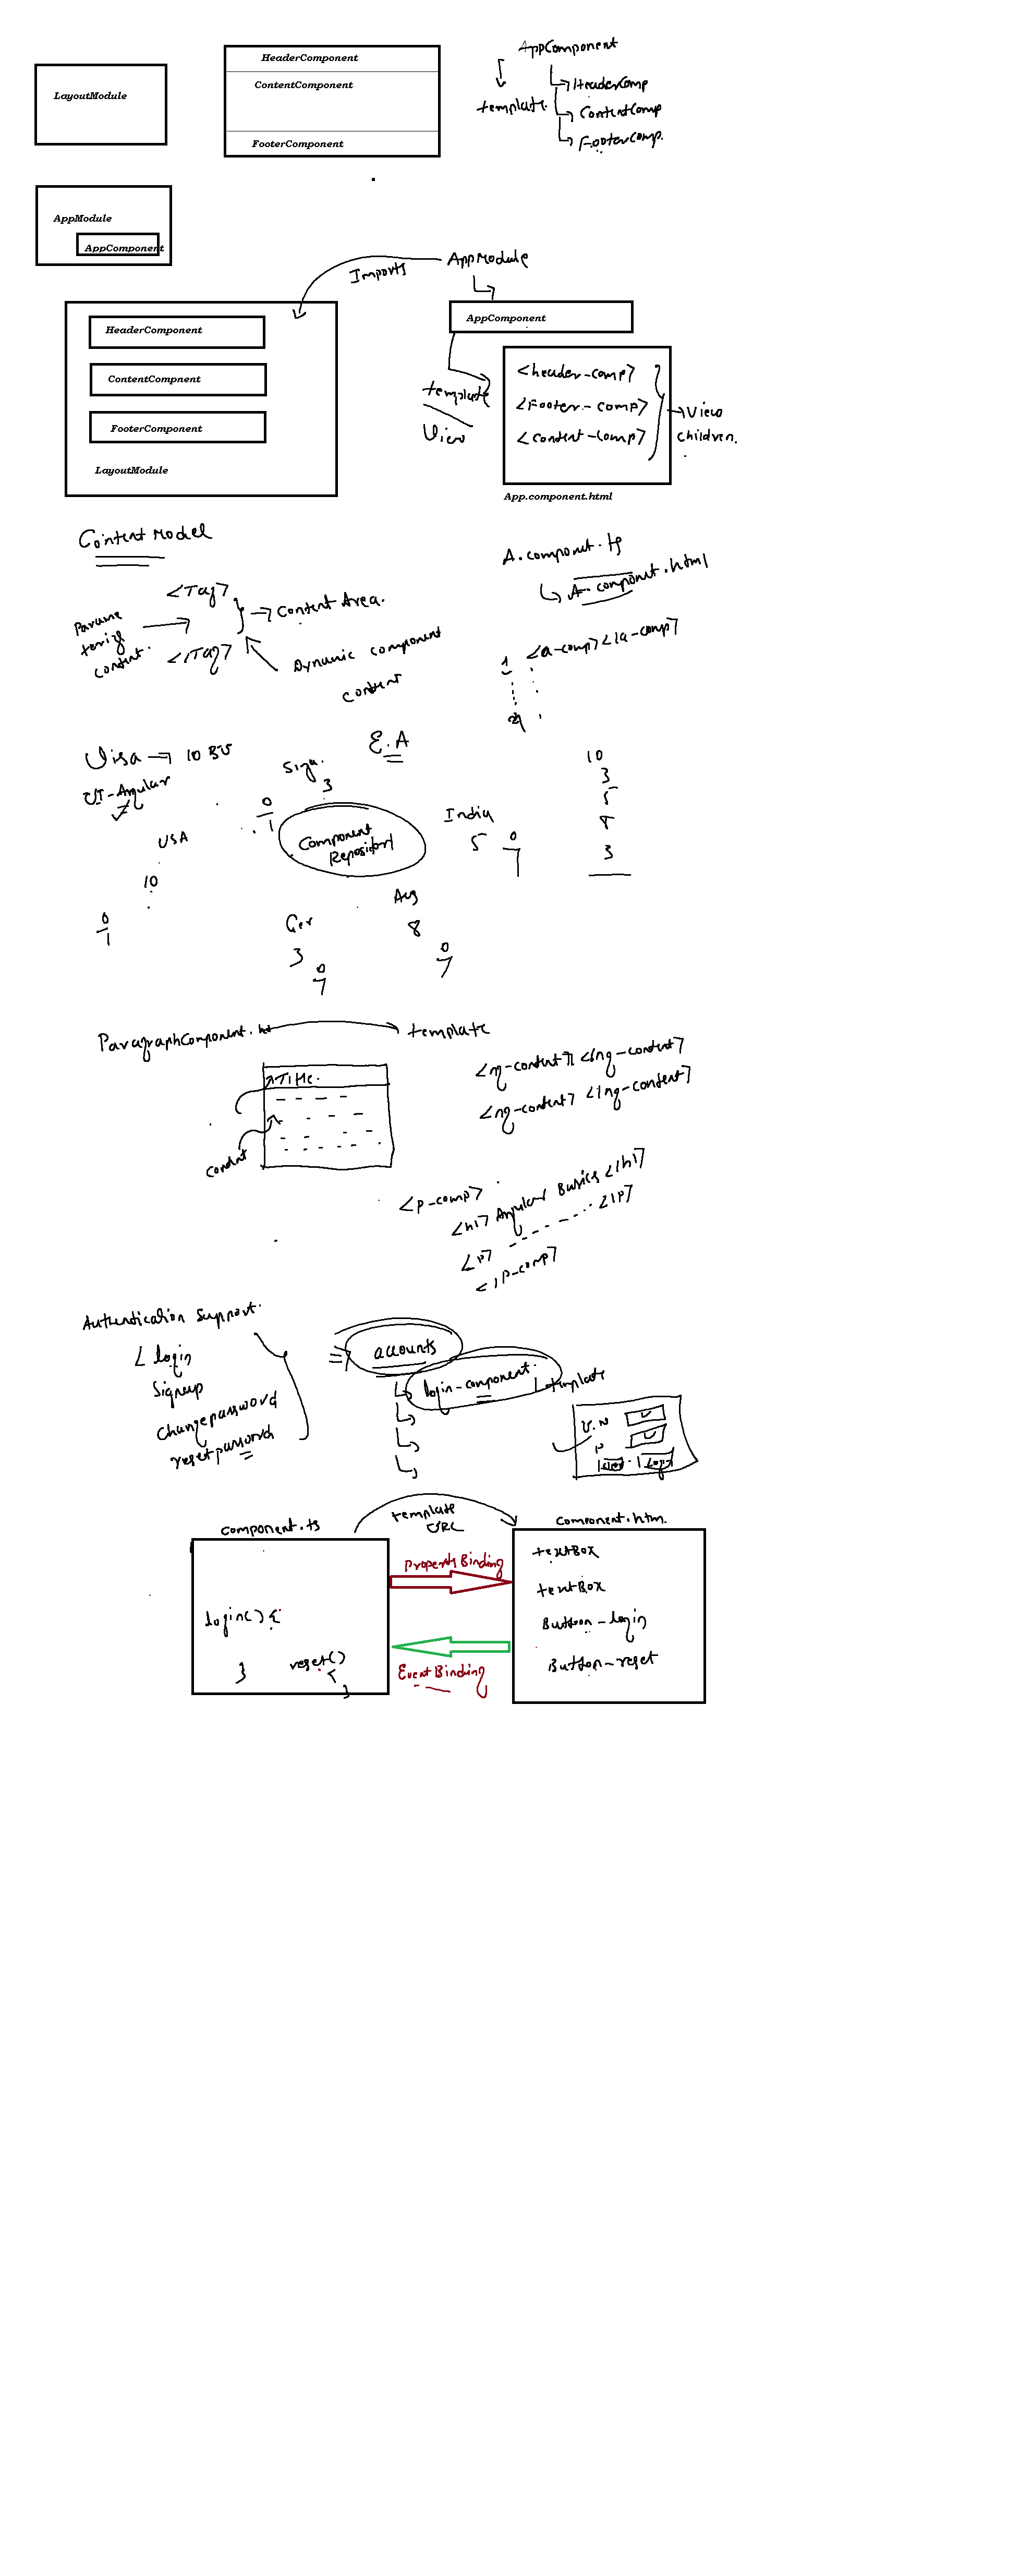 LayoutModule
HeaderComponent
ContentComponent
FooterComponent
AppComponent
HeaderComp
template.
ContentComp
FooterComp.
AppModule
AppComponent
Imports
AppModule
AppComponent
HeaderComponent
ContentCompnent
FooterComponent
LayoutModule
template
View
<header-comp>
<Footer-comp>
<content-comp>
View
children.
App.component.html
Content Model
<Tag>
Content Area.
</Tag>
Parame
terize
content.
Dynamic component
content
A.component.ts
A.component.html
1 <a-comp></a-comp>
Visa → 10 BU
UI-Angular
E.A
3
Component
Repository
USA
10
India
5
Ger
3
8
10
3
5
8
3
ParagraphComponent.
template
Title.
Content
<ng-content></ng-content>
<ng-content></ng-content>
<p-comp>
<h1> Angular Basics </h1>
<p> ------ </p>
</p-comp>
Authentication Support.
login
Signup
Changepassword
resetpassword
accounts
login-component.
template
U.N
P
Login
component.ts
template
URL
component.htm.
login() {
}
reset()
{
}
Property Binding
Event Binding
textBox
textBox
Button-login
Button-reset